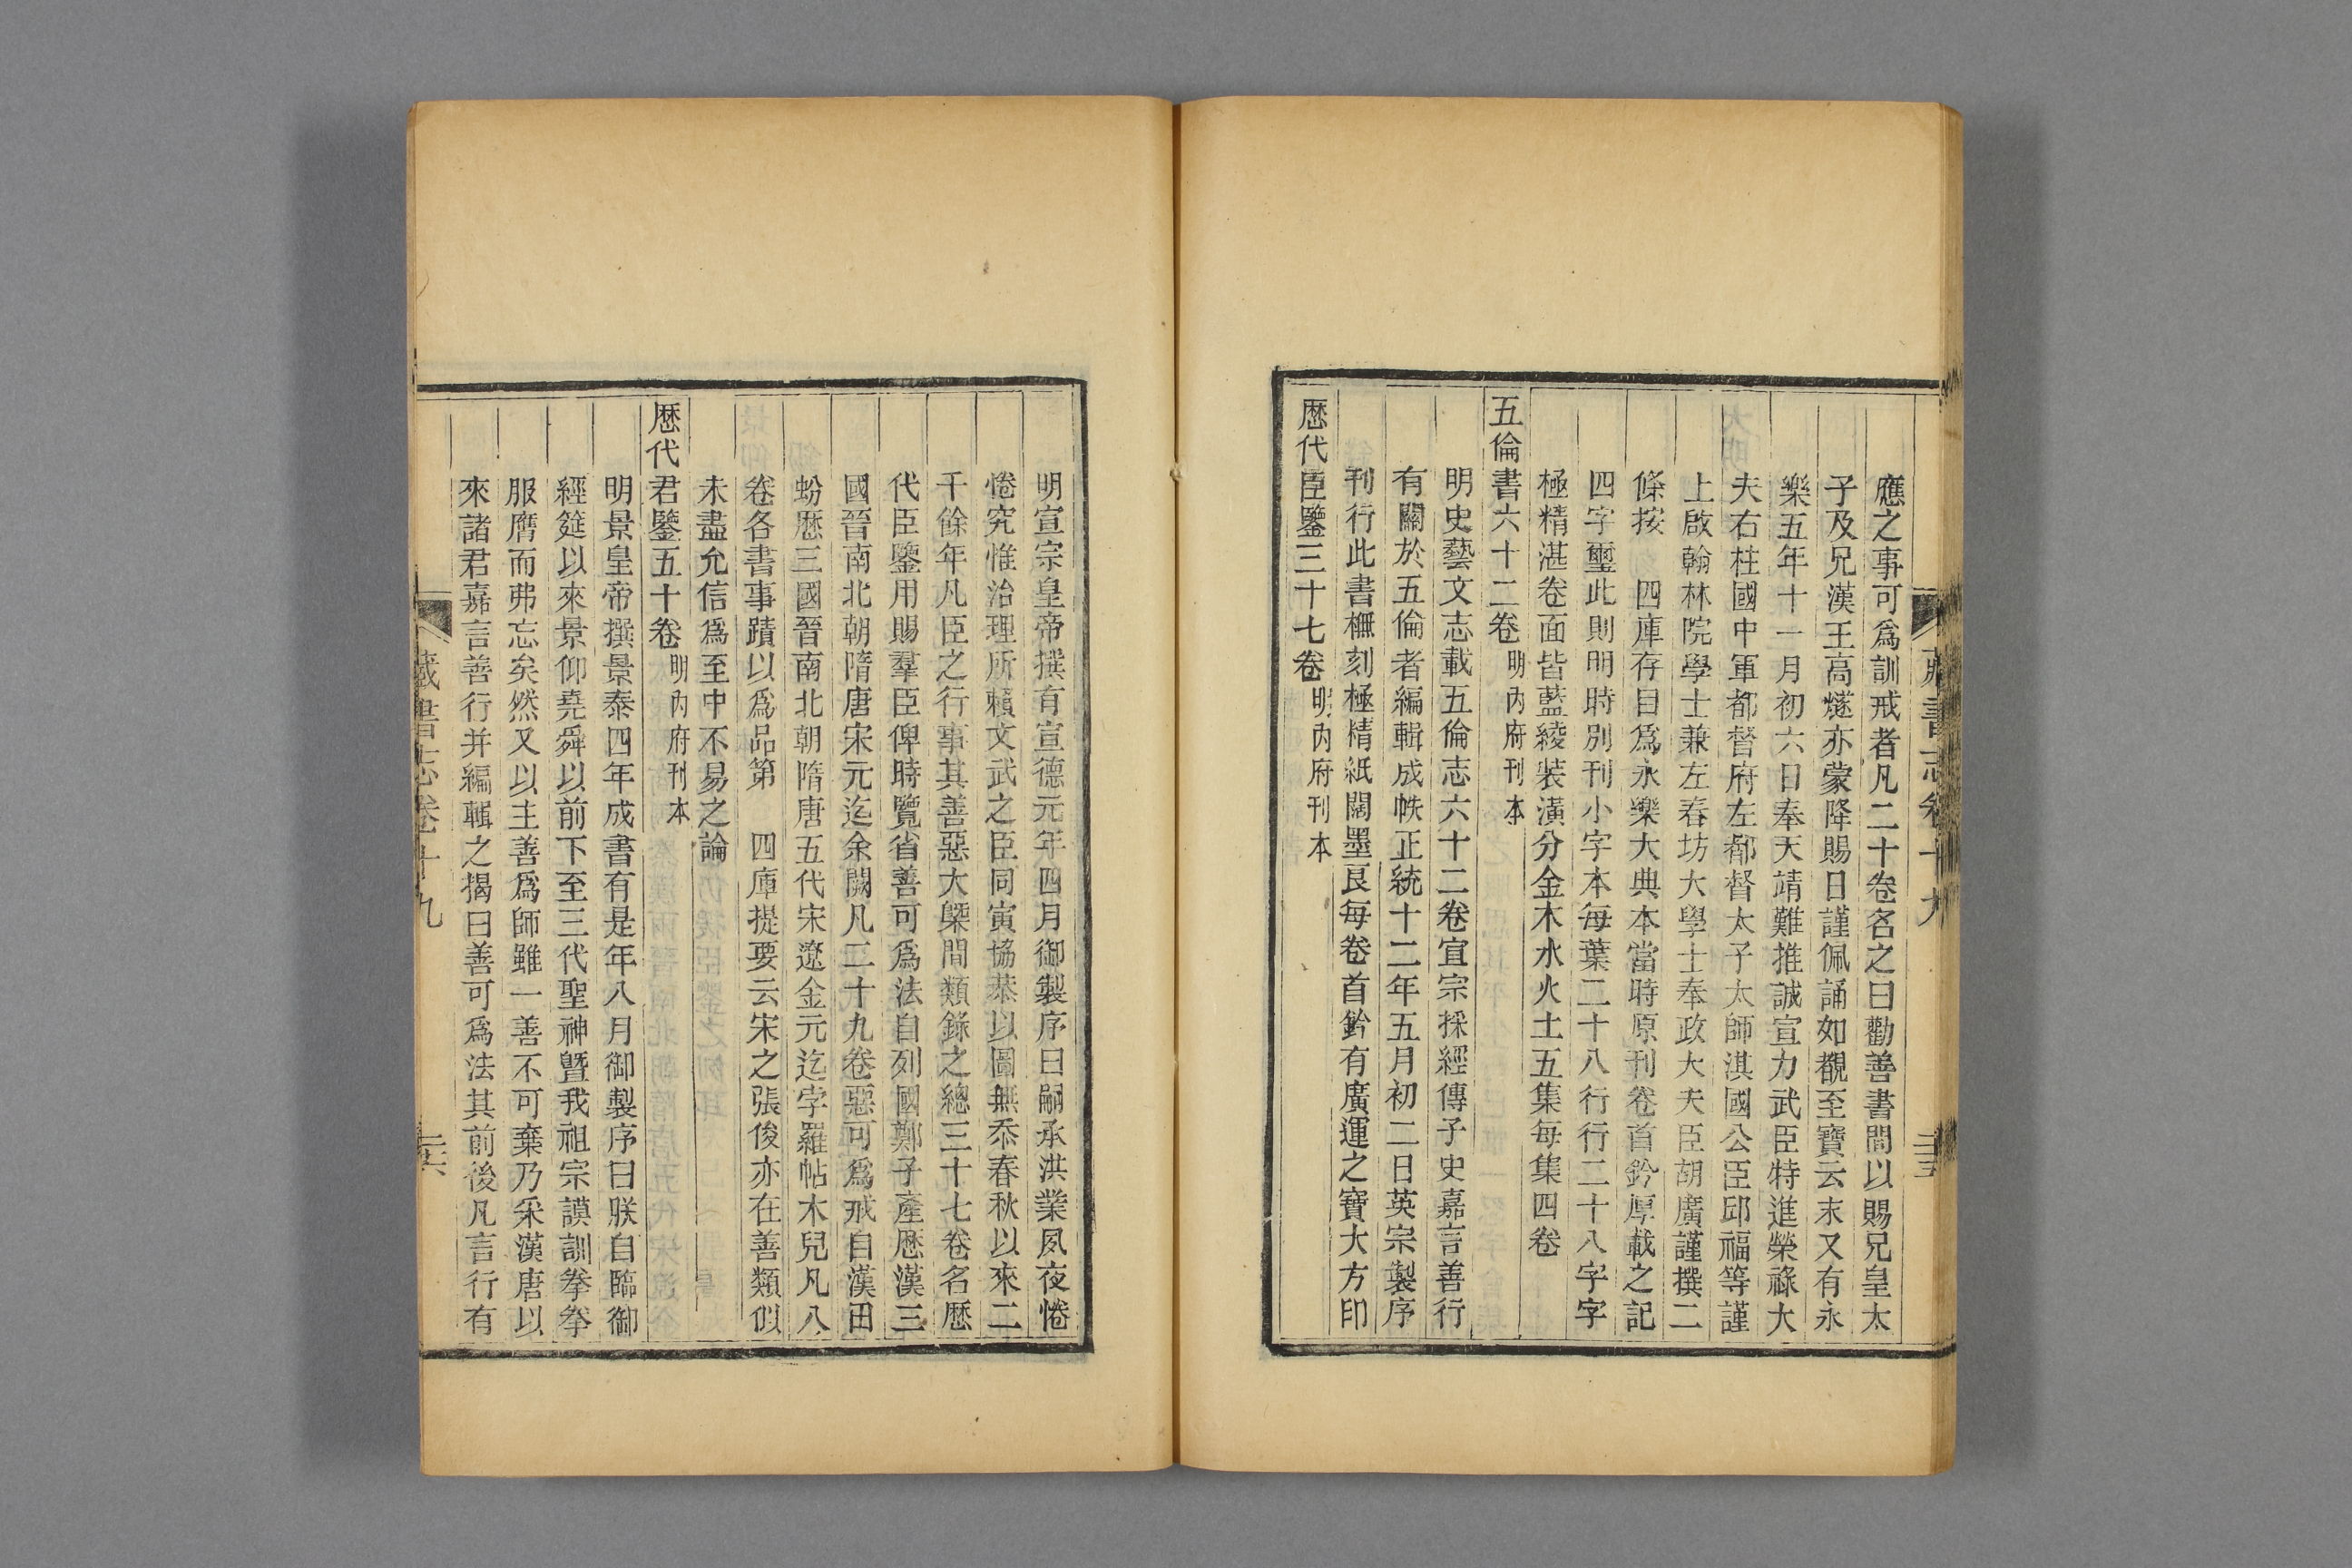 藏書志卷十九
三十五
應之事可爲訓戒者凡二十卷名之曰勸善書間以賜兄皇太
子及兄漢王高燧亦蒙降賜日謹佩誦如覩至寶云末又有永
樂五年十一月初六日奉天靖難推誠宣力武臣特進榮祿大
夫右柱國中軍都督府左都督太子太師淇國公臣邱福等謹
上啟翰林院學士兼左春坊大學士奉政大夫臣胡廣謹撰二
條按 四庫存目爲永樂大典本當時原刊卷首鈐厚載之記
四字璽此則明時別刊小字本每葉二十八行行二十八字字
極精湛卷面皆藍綾裝潢分金木水火土五集每集四卷
五倫書六十二卷 明內府刊本
明史藝文志載五倫志六十二卷宣宗採經傳子史嘉言善行
有關於五倫者編輯成帙正統十二年五月初二日英宗製序
刊行此書橅刻極精紙闊墨良每卷首鈐有廣運之寶大方印
歷代臣鑒三十七卷 明內府刊本
明宣宗皇帝撰有宣德元年四月御製序曰嗣承洪業夙夜惓
惓究惟治理所賴文武之臣同寅協恭以圖無忝春秋以來二
千餘年凡臣之行事其善惡大槩間類錄之總三十七卷名歷
代臣鑒用賜羣臣俾時覽省善可爲法自列國鄭子產歷漢三
國晉南北朝隋唐宋元迄余闕凡二十九卷惡可爲戒自漢田
蚡歷三國晉南北朝隋唐五代宋遼金元迄孛羅帖木兒凡八
卷各書事蹟以爲品第 四庫提要云宋之張俊亦在善類似
未盡允信爲至中不易之論
歷代君鑒五十卷 明內府刊本
明景皇帝撰景泰四年成書有是年八月御製序曰朕自臨御
經筵以來景仰堯舜以前下至三代聖神曁我祖宗謨訓拳拳
服膺而弗忘矣然又以主善爲師雖一善不可棄乃采漢唐以
來諸君嘉言善行并編輯之揭曰善可爲法其前後凡言行有
藏書志卷十九
三十六